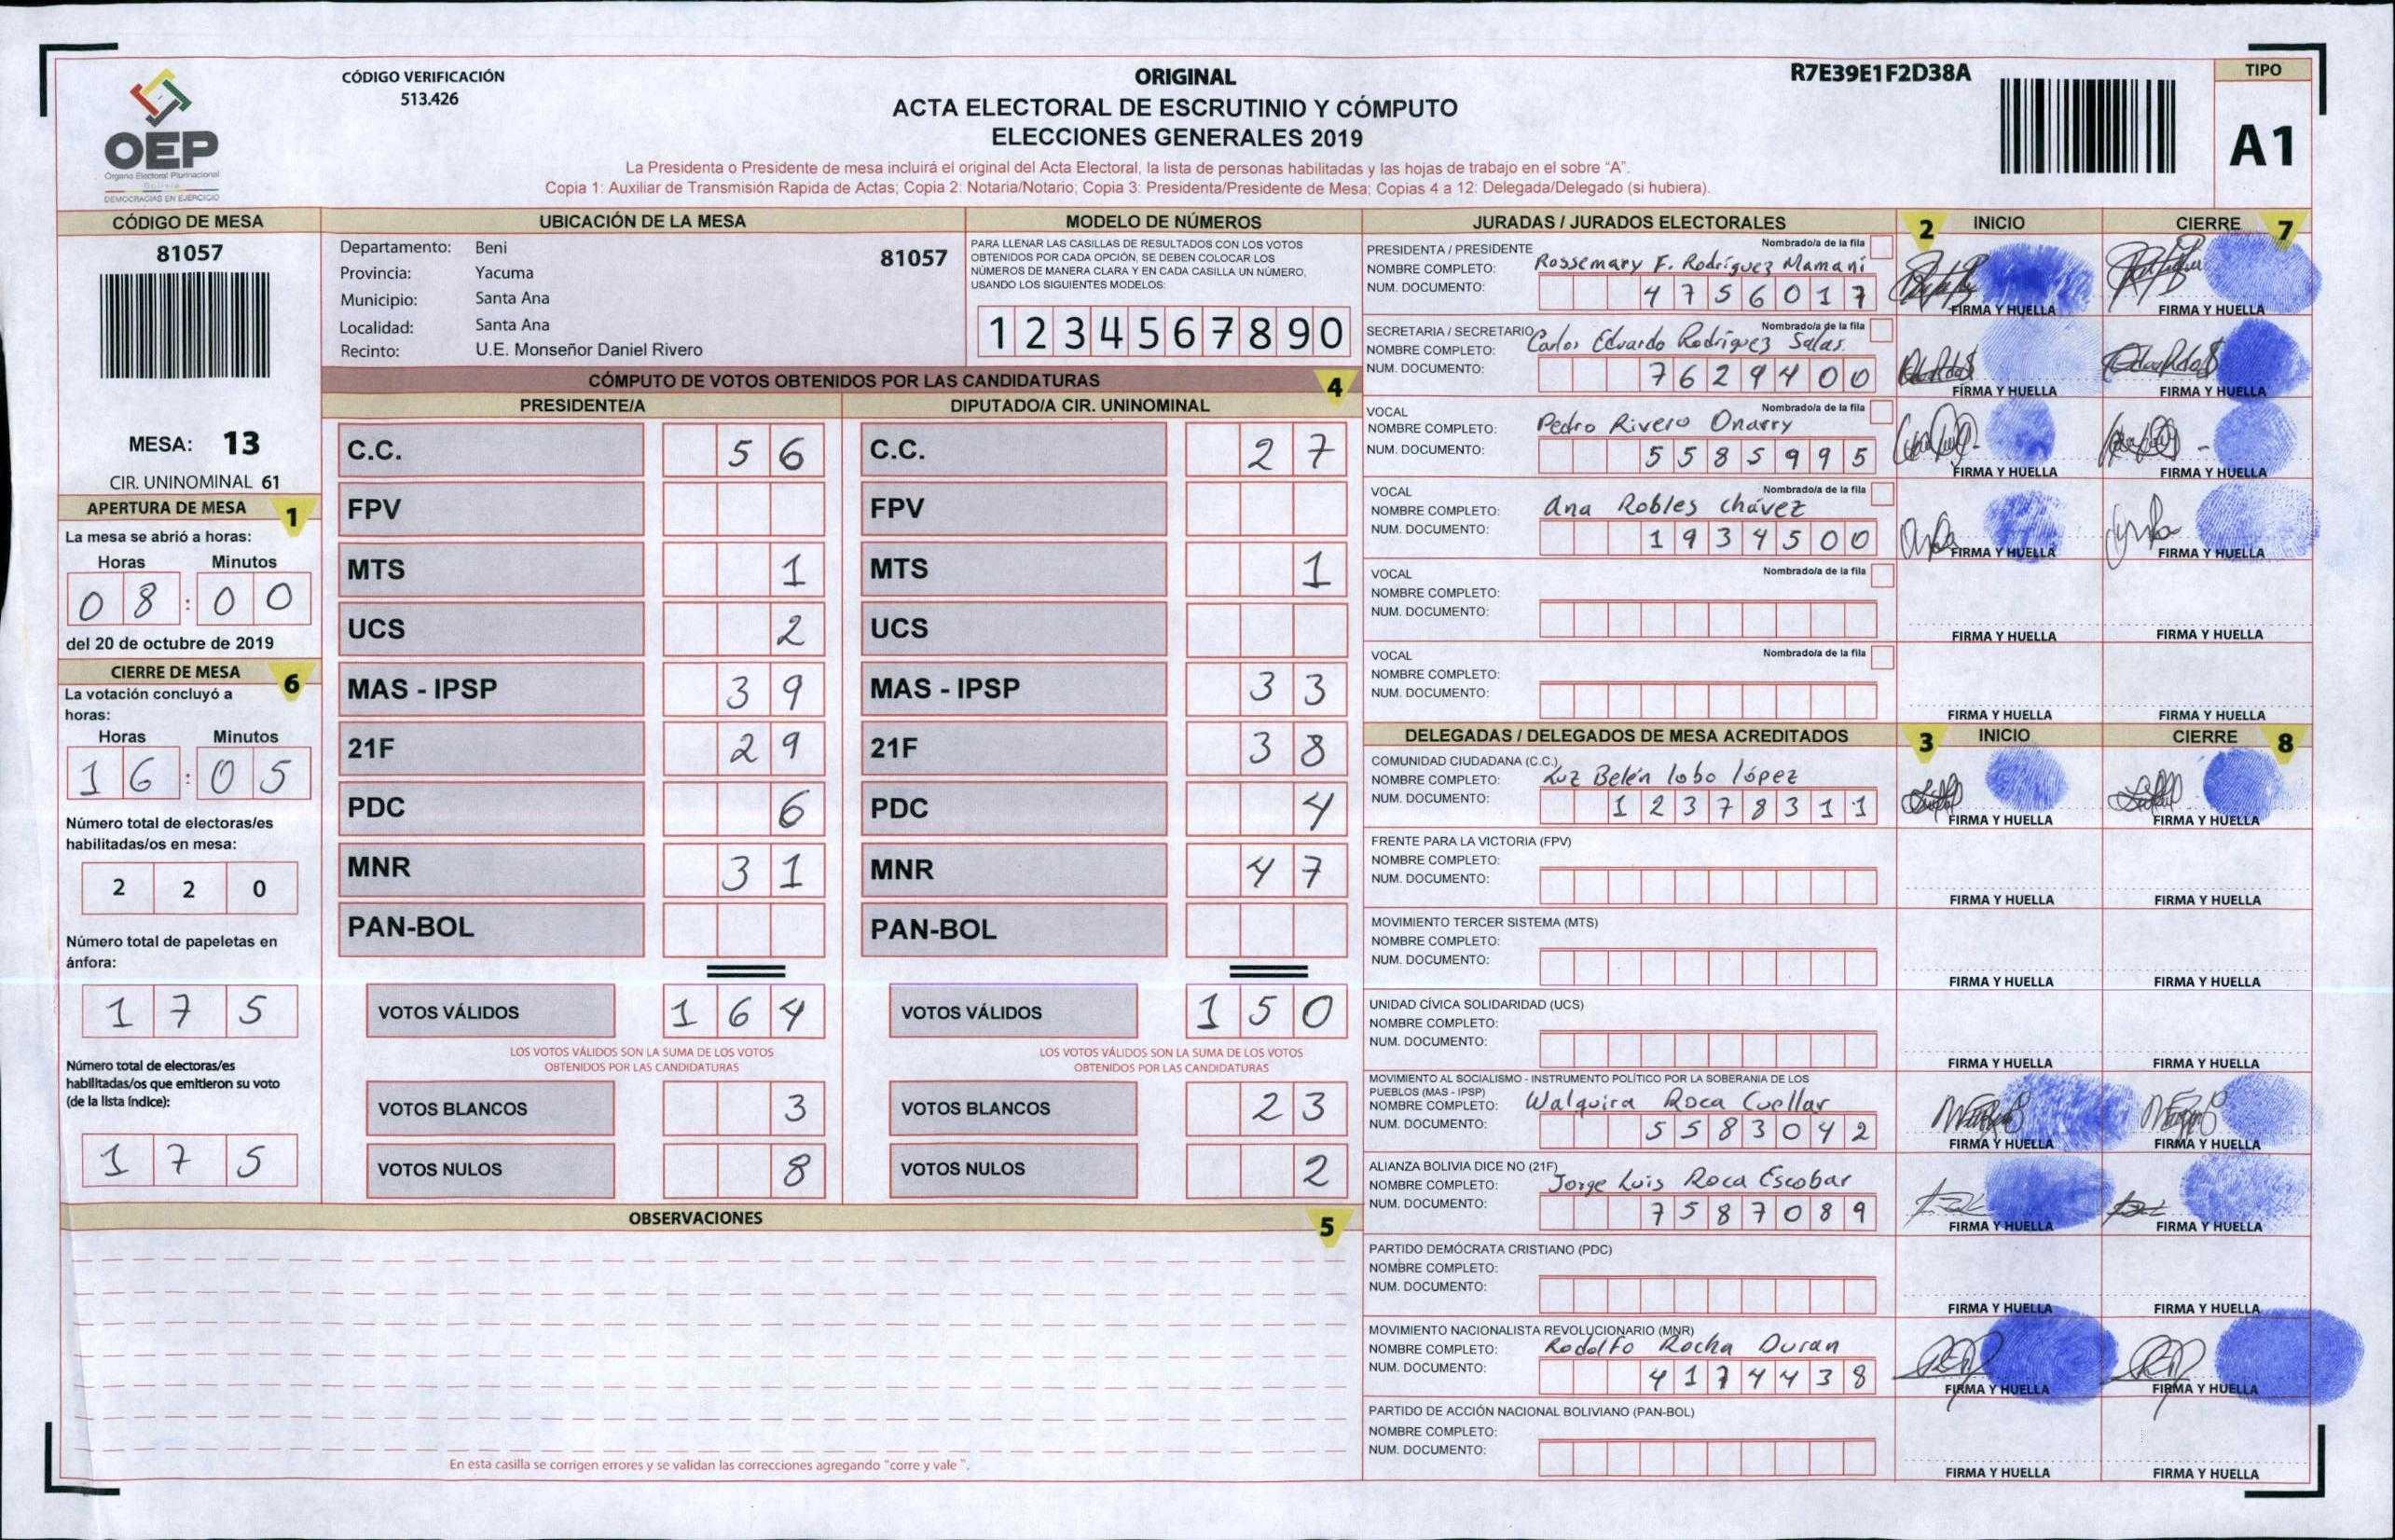 OEP
Órgano Electoral Plurinacional
Bolivia
DEMOCRACIAS EN EJERCICIO
CÓDIGO VERIFICACIÓN
513.426
ORIGINAL
ACTA ELECTORAL DE ESCRUTINIO Y CÓMPUTO
ELECCIONES GENERALES 2019
La Presidenta o Presidente de mesa incluirá el original del Acta Electoral, la lista de personas habilitadas y las hojas de trabajo en el sobre "A".
Copia 1: Auxiliar de Transmisión Rapida de Actas; Copia 2: Notaria/Notario; Copia 3: Presidenta/Presidente de Mesa; Copias 4 a 12: Delegada/Delegado (si hubiera).
R7E39E1F2D38A
TIPO
A1
CÓDIGO DE MESA
81057
MESA: 13
CIR. UNINOMINAL 61
APERTURA DE MESA 1
La mesa se abrió a horas:
Horas Minutos
08:00
del 20 de octubre de 2019
CIERRE DE MESA 6
La votación concluyó a
horas:
Horas Minutos
16:05
Número total de electoras/es
habilitadas/os en mesa:
2 2 0
Número total de papeletas en
ánfora:
1 7 5
Número total de electoras/es
habilitadas/os que emitieron su voto
(de la lista índice):
1 7 5
UBICACIÓN DE LA MESA
Departamento: Beni 81057
Provincia: Yacuma
Municipio: Santa Ana
Localidad: Santa Ana
Recinto: U.E. Monseñor Daniel Rivero
MODELO DE NÚMEROS
PARA LLENAR LAS CASILLAS DE RESULTADOS CON LOS VOTOS
OBTENIDOS POR CADA OPCIÓN, SE DEBEN COLOCAR LOS
NÚMEROS DE MANERA CLARA Y EN CADA CASILLA UN NÚMERO,
USANDO LOS SIGUIENTES MODELOS:
1 2 3 4 5 6 7 8 9 0
CÓMPUTO DE VOTOS OBTENIDOS POR LAS CANDIDATURAS 4
PRESIDENTE/A DIPUTADO/A CIR. UNINOMINAL
C.C. 5 6 C.C. 2 7
FPV FPV
MTS 1 MTS 1
UCS 2 UCS
MAS - IPSP 3 9 MAS - IPSP 3 3
21F 2 9 21F 3 8
PDC 6 PDC 4
MNR 3 1 MNR 4 7
PAN-BOL PAN-BOL
VOTOS VÁLIDOS 1 6 4 VOTOS VÁLIDOS 1 5 0
LOS VOTOS VÁLIDOS SON LA SUMA DE LOS VOTOS LOS VOTOS VÁLIDOS SON LA SUMA DE LOS VOTOS
OBTENIDOS POR LAS CANDIDATURAS OBTENIDOS POR LAS CANDIDATURAS
VOTOS BLANCOS 3 VOTOS BLANCOS 2 3
VOTOS NULOS 8 VOTOS NULOS 2
OBSERVACIONES 5
En esta casilla se corrigen errores y se validan las correcciones agregando "corre y vale ".
JURADAS / JURADOS ELECTORALES 2 INICIO CIERRE 7
PRESIDENTA / PRESIDENTE Nombrado/a de la fila
NOMBRE COMPLETO: Rossemary F. Rodríguez Mamani
NUM. DOCUMENTO: 4 7 5 6 0 1 7
FIRMA Y HUELLA FIRMA Y HUELLA
SECRETARIA / SECRETARIO Nombrado/a de la fila
NOMBRE COMPLETO: Carlos Eduardo Rodríguez Salas
NUM. DOCUMENTO: 7 6 2 9 4 0 0
FIRMA Y HUELLA FIRMA Y HUELLA
VOCAL Nombrado/a de la fila
NOMBRE COMPLETO: Pedro Rivero Onarry
NUM. DOCUMENTO: 5 5 8 5 9 9 5
FIRMA Y HUELLA FIRMA Y HUELLA
VOCAL Nombrado/a de la fila
NOMBRE COMPLETO: Ana Robles Chávez
NUM. DOCUMENTO: 1 9 3 4 5 0 0
FIRMA Y HUELLA FIRMA Y HUELLA
VOCAL Nombrado/a de la fila
NOMBRE COMPLETO:
NUM. DOCUMENTO:
FIRMA Y HUELLA FIRMA Y HUELLA
VOCAL Nombrado/a de la fila
NOMBRE COMPLETO:
NUM. DOCUMENTO:
FIRMA Y HUELLA FIRMA Y HUELLA
DELEGADAS / DELEGADOS DE MESA ACREDITADOS 3 INICIO CIERRE 8
COMUNIDAD CIUDADANA (C.C.)
NOMBRE COMPLETO: Luz Belén lobo lópez
NUM. DOCUMENTO: 1 2 3 7 8 3 1 1
FIRMA Y HUELLA FIRMA Y HUELLA
FRENTE PARA LA VICTORIA (FPV)
NOMBRE COMPLETO:
NUM. DOCUMENTO:
FIRMA Y HUELLA FIRMA Y HUELLA
MOVIMIENTO TERCER SISTEMA (MTS)
NOMBRE COMPLETO:
NUM. DOCUMENTO:
FIRMA Y HUELLA FIRMA Y HUELLA
UNIDAD CÍVICA SOLIDARIDAD (UCS)
NOMBRE COMPLETO:
NUM. DOCUMENTO:
FIRMA Y HUELLA FIRMA Y HUELLA
MOVIMIENTO AL SOCIALISMO - INSTRUMENTO POLÍTICO POR LA SOBERANIA DE LOS
PUEBLOS (MAS - IPSP)
NOMBRE COMPLETO: Walquira Roca Cuellar
NUM. DOCUMENTO: 5 5 8 3 0 4 2
FIRMA Y HUELLA FIRMA Y HUELLA
ALIANZA BOLIVIA DICE NO (21F)
NOMBRE COMPLETO: Jorge Luis Roca Escobar
NUM. DOCUMENTO: 7 5 8 7 0 8 9
FIRMA Y HUELLA FIRMA Y HUELLA
PARTIDO DEMÓCRATA CRISTIANO (PDC)
NOMBRE COMPLETO:
NUM. DOCUMENTO:
FIRMA Y HUELLA FIRMA Y HUELLA
MOVIMIENTO NACIONALISTA REVOLUCIONARIO (MNR)
NOMBRE COMPLETO: Rodolfo Rocha Duran
NUM. DOCUMENTO: 4 1 7 4 4 3 8
FIRMA Y HUELLA FIRMA Y HUELLA
PARTIDO DE ACCIÓN NACIONAL BOLIVIANO (PAN-BOL)
NOMBRE COMPLETO:
NUM. DOCUMENTO:
FIRMA Y HUELLA FIRMA Y HUELLA